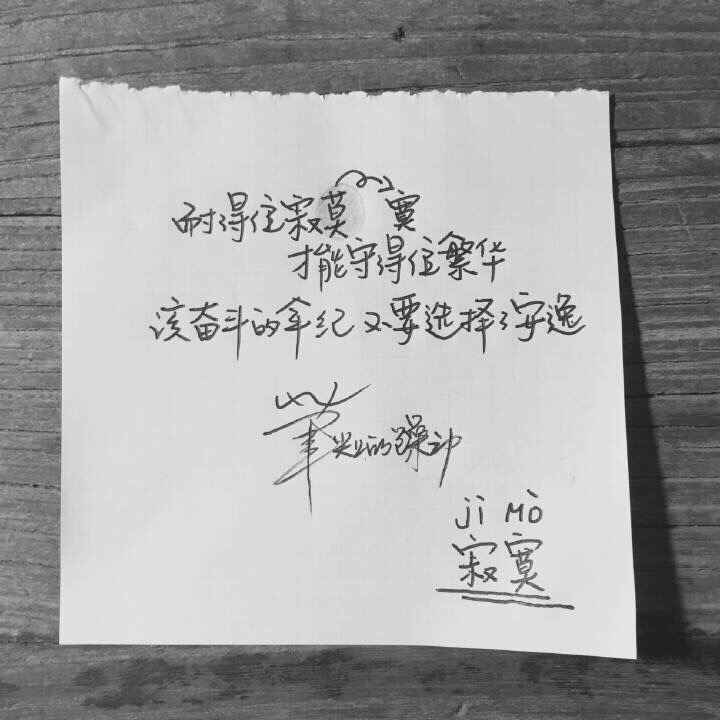 耐得住寂莫 寞
才能守得住繁华
该奋斗的年纪不要选择安逸
毕业的躁动
jì Mò
寂寞